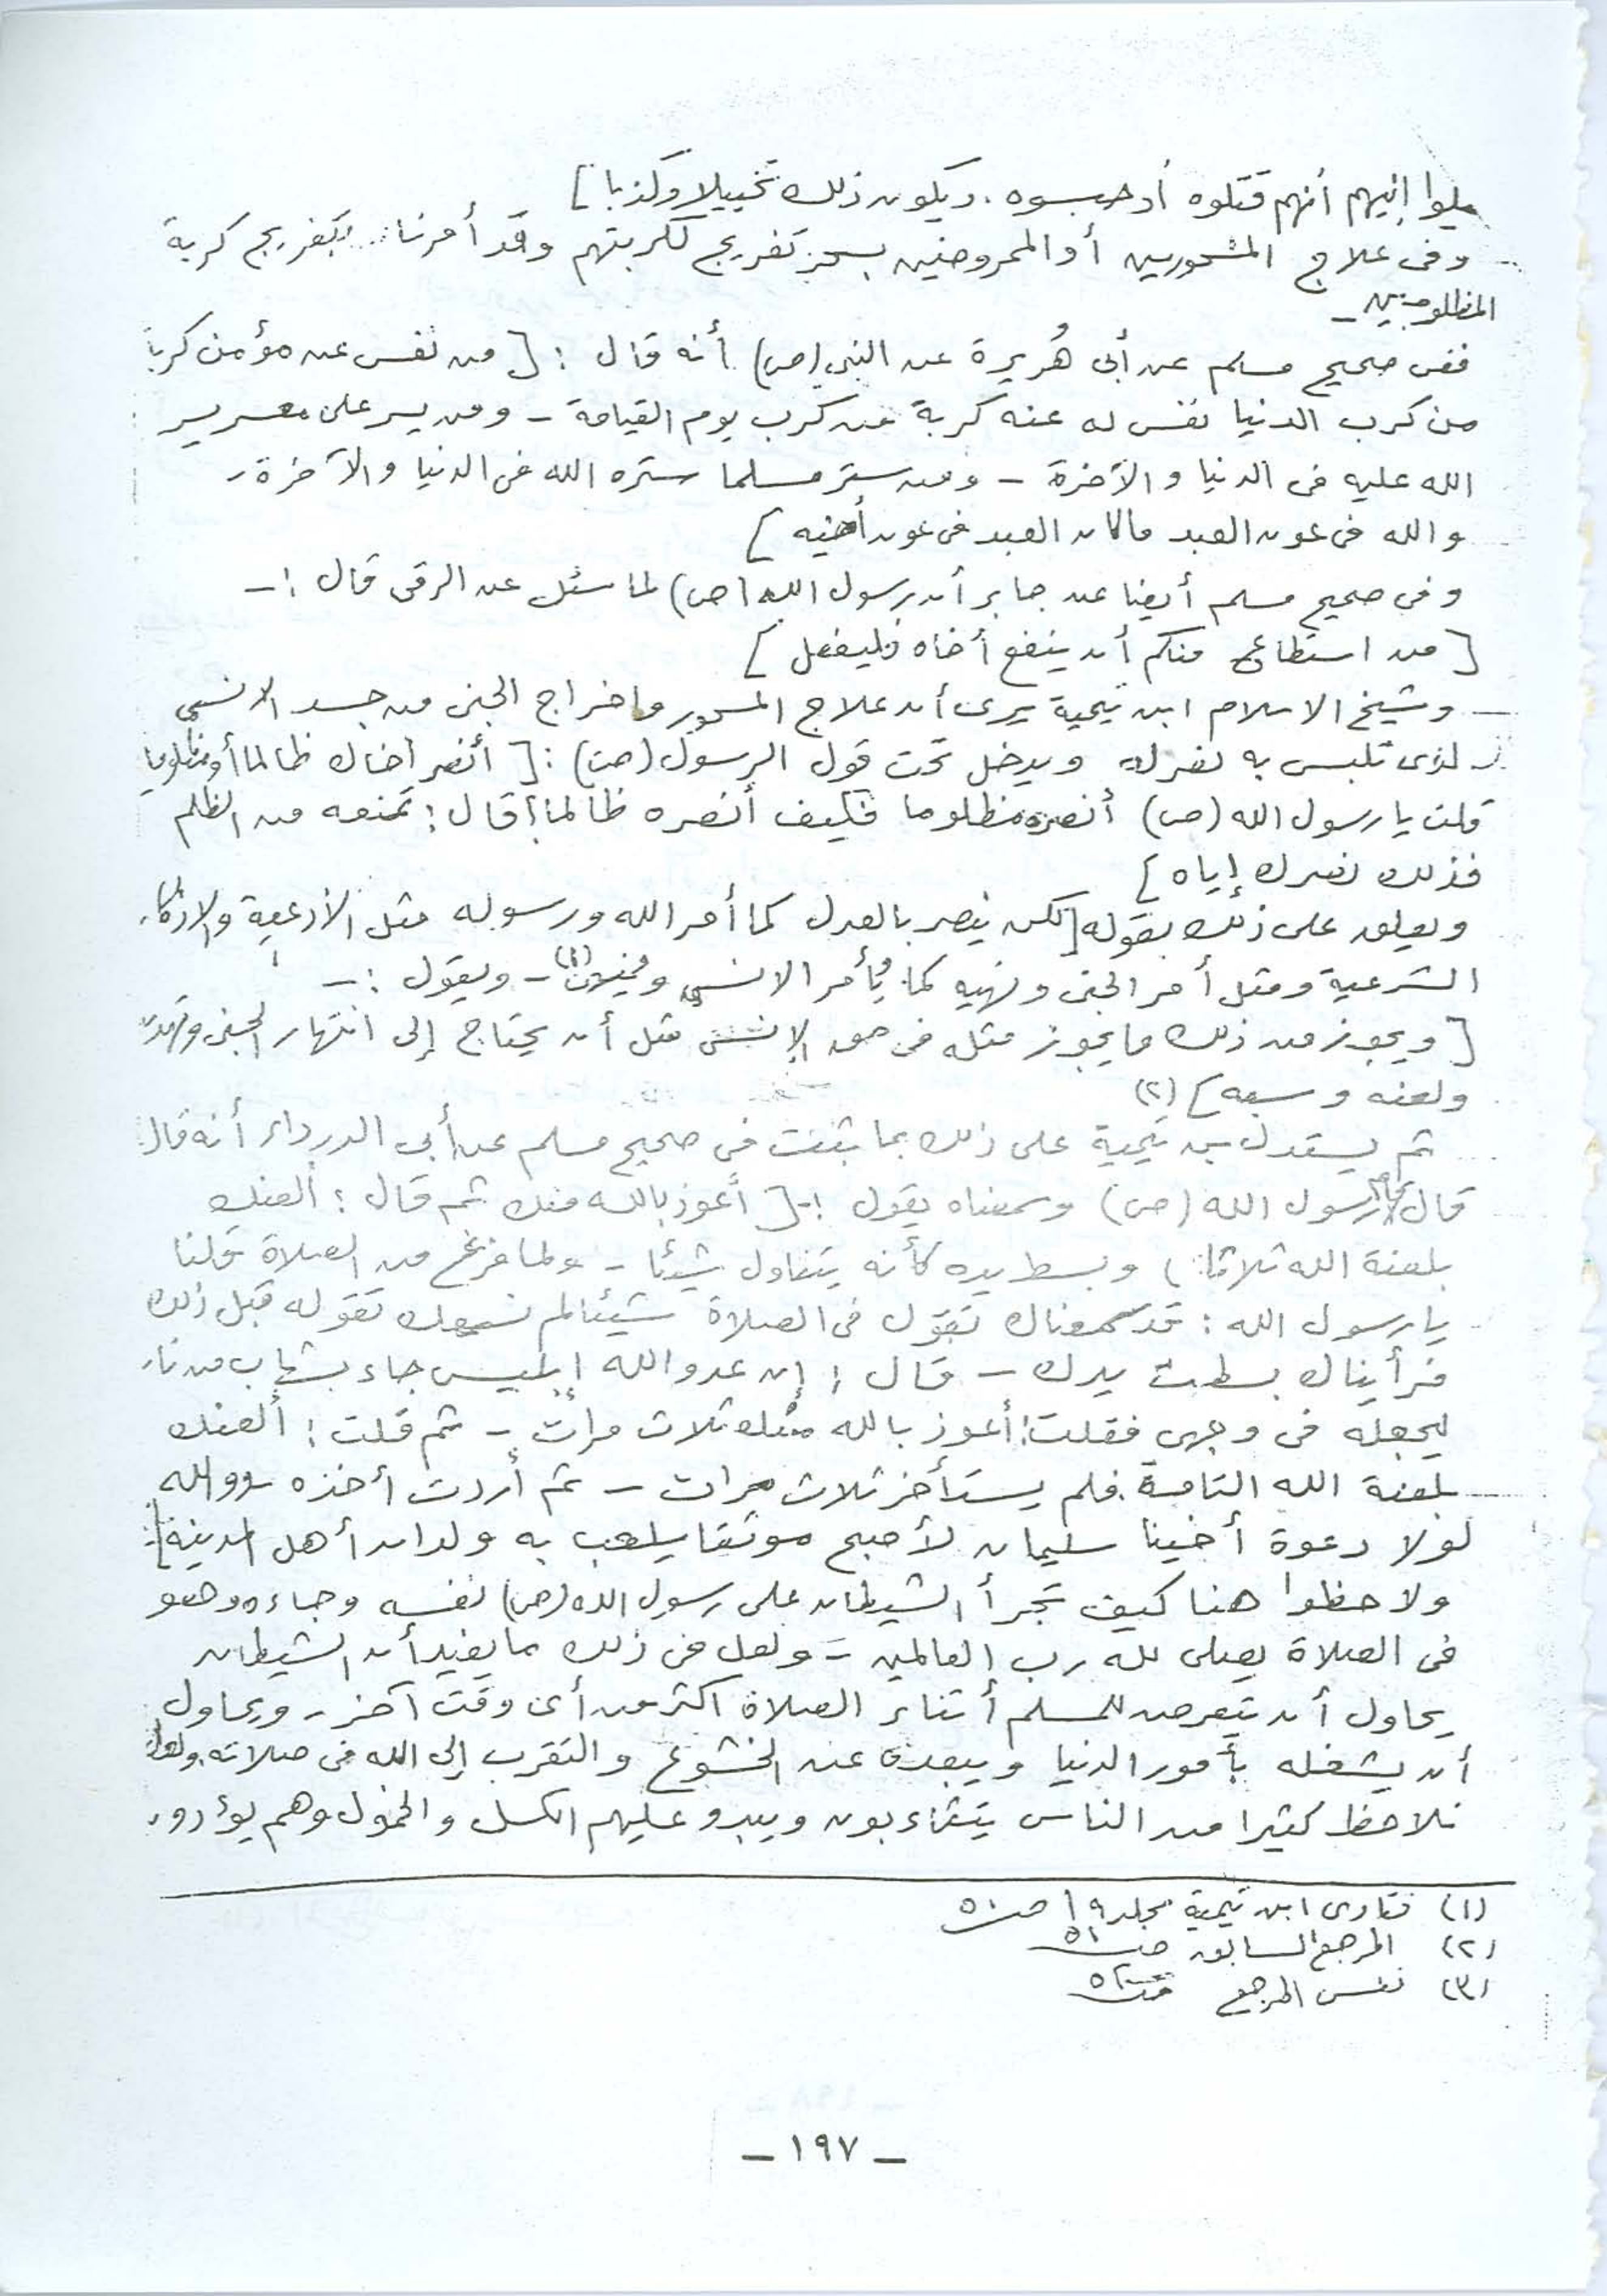 يلوا إليهم أنهم قتلوه أو حبسوه . ويكون ذلك تخييلا وكذبا ]
وفى علاج المسحورين أو الممروضين بسحر تفريج لكربتهم وقد أمرنا بتفريج كربة
المظلومين -
ففى صحيح مسلم عن أبى هُريرة عن النبى (ص) أنه قال : [ من نفس عن مؤمن كربة
من كرب الدنيا نفس له عنه كربة من كرب يوم القيامة - ومن يسر على معسر يسر
الله عليه فى الدنيا والآخرة - ومن ستر مسلما ستره الله فى الدنيا والآخرة -
والله فى عون العبد ما كان العبد فى عون أخيه ]
وفى صحيح مسلم أيضا عن جابر أن رسول الله (ص) لما سئل عن الرقى قال :-
[ من استطاع منكم أن ينفع أخاه فليفعل ]
وشيخ الاسلام ابن تيمية يرى أن علاج المسحور وإخراج الجنى من جسد الانسى
لذى تلبس به نصرله ويدخل تحت قول الرسول (ص) : [ أنصر أخاك ظالما أو مظلوما
قلت يا رسول الله (ص) أنصره مظلوما فكيف أنصره ظالما ؟ قال : تمنعه من الظلم
فذلك نصرك إياه ]
ويعلق على ذلك بقوله [ لكن ينصر بالعدل كما أمر الله ورسوله مثل الأدعية والاذكار
الشرعية ومثل أمر الجنى ونهيه كما يأمر الانسى (١) - ويقول :-
[ ويجوز من ذلك ما يجوز مثله فى حق الإنسى مثل أن يحتاج إلى انتهار الجنى وتهديده
ولعنه وسبه ] (٢)
ثم يستدل بن تيمية على ذلك بما ثبت فى صحيح مسلم عن أبى الدرداء أنه قال
قال قام رسول الله (ص) وسمعناه يقول :- [ أعوذ بالله منك ثم قال : ألعنك
بلعنة الله ثلاثا ) وبسط يده كأنه يتناول شيئا - ولما فرغ من الصلاة قلنا
يا رسول الله : قد سمعناك تقول فى الصلاة شيئا لم نسمعك تقوله قبل ذلك
فرأيناك بسطت يدك - قال : إن عدو الله إبليس جاء بشهاب من نار
ليجعله فى وجهى فقلت : أعوذ بالله منك ثلاث مرات - ثم قلت : ألعنك
بلعنة الله التامة فلم يستأخر ثلاث مرات - ثم أردت أخذه ووالله
لولا دعوة أخينا سليمان لأصبح موثقا يلعب به ولدان أهل المدينة ]
ولاحظوا هنا كيف تجرأ الشيطان على رسول الله (ص) نفسه وجاءه وهو
فى الصلاة يصلى لله رب العالمين - ولعل فى ذلك ما يفيد أن الشيطان
يحاول أن يتعرض للمسلم أثناء الصلاة اكثر من أى وقت آخر - ويحاول
أن يشغله بأمور الدنيا ويبعده عن الخشوع والتقرب إلى الله فى صلاته ولعلنا
نلاحظ كثيرا من الناس يتثاءبون ويبدو عليهم الكسل والخمول وهم يؤدون
(١) فتاوى ابن تيمية مجلد ١٩ ص ٥٠
(٢) المرجع السابق ص ٥١
(٣) نفس المرجع ص ٥٢
- ١٩٧ -